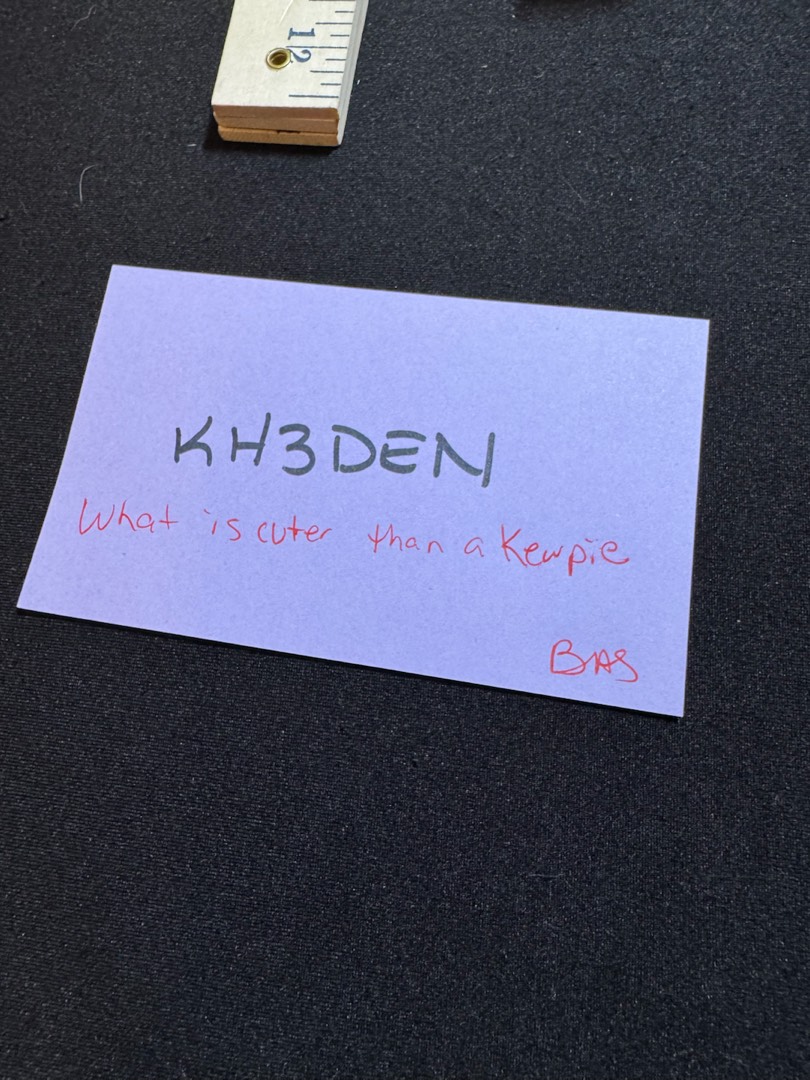 12
KH3DEN
What is cuter than a Kewpie
BAS